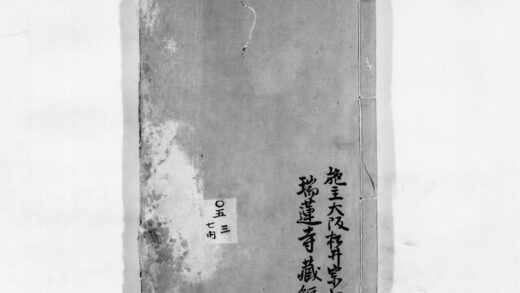 施主大阪松井宗
瑞蓮寺藏經
〇五三
七内